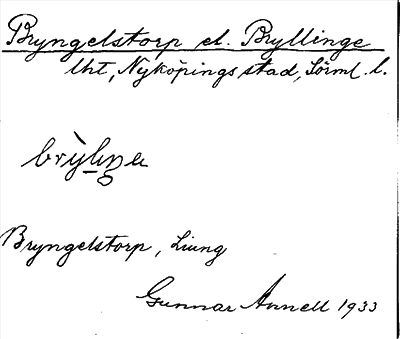 Bryngelstorp el. Bryllinge
Uht, Nyköpings stad, Sörml. l.
Bryngelstorp, Liung
Gunnar Annell 1933